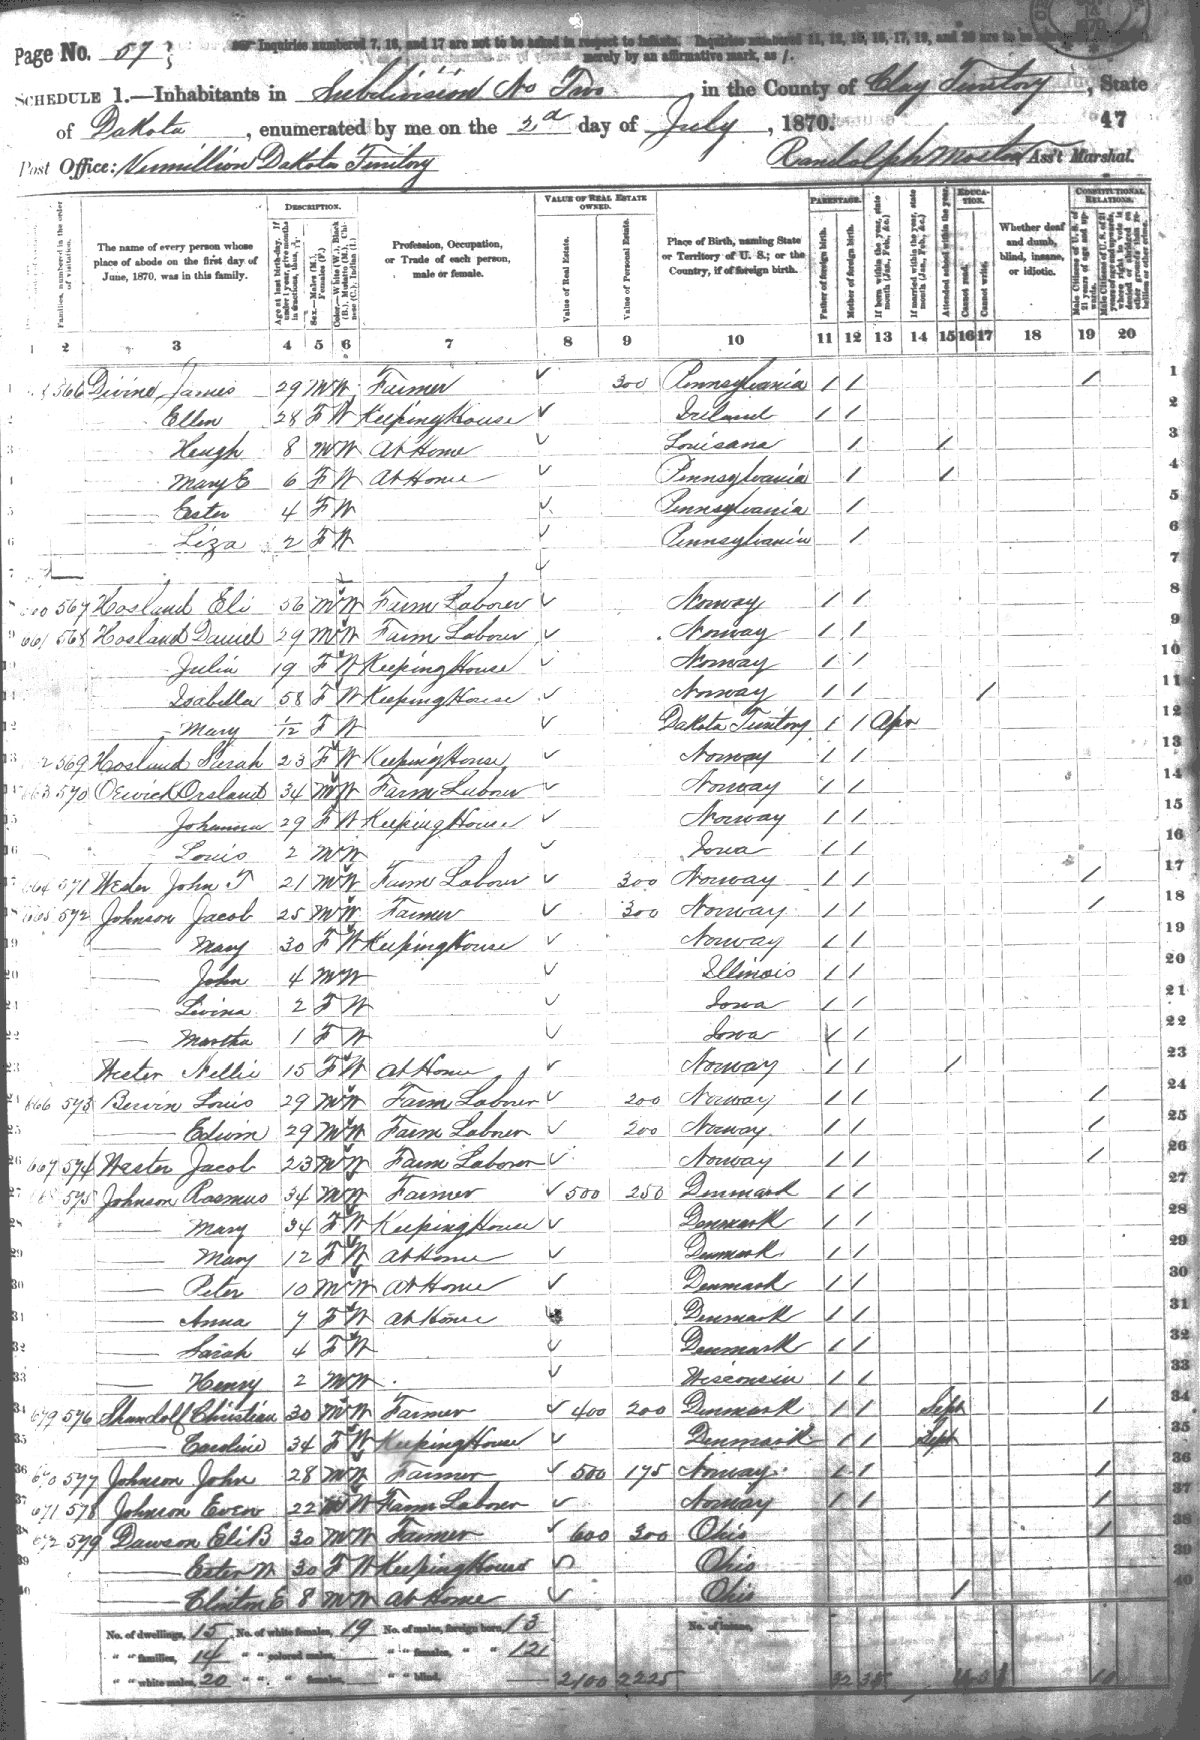 Page No. 57
Inquiries numbered 7, 16, and 17 are not to be asked in respect to infants. Inquiries numbered 11, 12, 15, 16, 17, 19, and 20 are to be answered
merely by an affirmative mark, as /.
SCHEDULE 1.—Inhabitants in Subdivision No Two, in the County of Clay Territory, State
of Dakota, enumerated by me on the 2d day of July, 1870. 47
Post Office: Vermillion Dakota Territory Randolph Ass't Marshal.
DESCRIPTION. VALUE OF REAL ESTATE OWNED. PARENTAGE. EDUCATION. CONSTITUTIONAL RELATIONS.
Families, numbered in the order of visitation. The name of every person whose place of abode on the first day of June, 1870, was in this family. Age at last birth-day. If under 1 year, give months in fractions, thus, Sex.—Males (M.), Females (F.) Color.—White (W.), Black (B.), Mulatto (M.), Chinese (C.), Indian (I.) Profession, Occupation, or Trade of each person, male or female. Value of Real Estate. Value of Personal Estate. Place of Birth, naming State or Territory of U. S.; or the Country, if of foreign birth. Father of foreign birth. Mother of foreign birth. If born within the year, state month (Jan., Feb., &c.) If married within the year, state month (Jan., Feb., &c.) Attended school within the year. Cannot read. Cannot write. Whether deaf and dumb, blind, insane, or idiotic. Male Citizens of U. S. of 21 years of age and upwards.
1 2 3 4 5 6 7 8 9 10 11 12 13 14 15 16 17 18 19 20
566 Divine, James 29 M W Farmer 300 Pennsylvania / / / 1
2 Ellen 28 F W Keeping House Ireland / / 2
3 Heugh 8 M W At Home Louisana / / 3
4 Mary E 6 F W At Home Pennsylvania / / 4
5 Ester 4 F W Pennsylvania / 5
6 Liza 2 F W Pennsylvania / 6
7 7
567 Hosland Eli 56 M W Farm Laborer Norway / / 8
9 661 568 Hosland Daniel 29 M W Farm Laborer Norway / / 9
10 Julia 19 F W Keeping House Norway / / 10
11 Isabella 58 F W Keeping House Norway / / / 11
12 Mary 1/12 F W Dakota Territory / / Apr 12
13 569 Hosland Sarah 23 F W Keeping House Norway / / 13
14 663 570 Orsland 34 M W Farm Laborer Norway / / 14
15 Johanna 29 F W Keeping House Norway / / 15
16 Louis 2 M W Iowa / / 16
17 664 571 Wester John T 21 M W Farm Laborer 300 Norway / / / 17
18 665 572 Johnson Jacob 25 M W Farmer 300 Norway / / / 18
19 Mary 30 F W Keeping House Norway / / 19
20 John 4 M W Illinois / / 20
21 Livina 2 F W Iowa / / 21
22 Martha 1 F W Iowa / / 22
23 Wester Nellie 15 F W At Home Norway / / / 23
24 666 573 Bervin Louis 29 M W Farm Laborer 200 Norway / / / 24
25 Edwin 29 M W Farm Laborer 200 Norway / / / 25
26 667 574 Wester Jacob 23 M W Farm Laborer Norway / / / 26
27 575 Johnson Rasmus 34 M W Farmer 500 250 Denmark / / 27
28 Mary 34 F W Keeping House Denmark / / 28
29 Mary 12 F W At Home Denmark / / 29
30 Peter 10 M W At Home Denmark / / 30
31 Anna 7 F W At Home Denmark / / 31
32 Sarah 4 F W Denmark / / 32
33 Henry 2 M W Wisconsin / / 33
34 576 Christian 30 M W Farmer 400 200 Denmark / / Sept / 34
35 Caroline 34 F W Keeping House Denmark / / Sept 35
36 670 577 Johnson John 28 M W Farmer 500 175 Norway / / / 36
37 671 578 Johnson Even 22 M W Farm Laborer Norway / / / 37
38 672 579 Dawson Eli B 30 M W Farmer 600 300 Ohio / 38
39 Ester 30 F W Keeping House Ohio 39
40 Clinton E 8 M W At Home Ohio / 40
No. of dwellings, 15 No. of white females, 19 No. of males, foreign born, 13 No. of insane,
" " families, 14 " " colored males, " " females, " " 121
" " white males, 20 " " " females, " " blind, 2100 2225 32 10